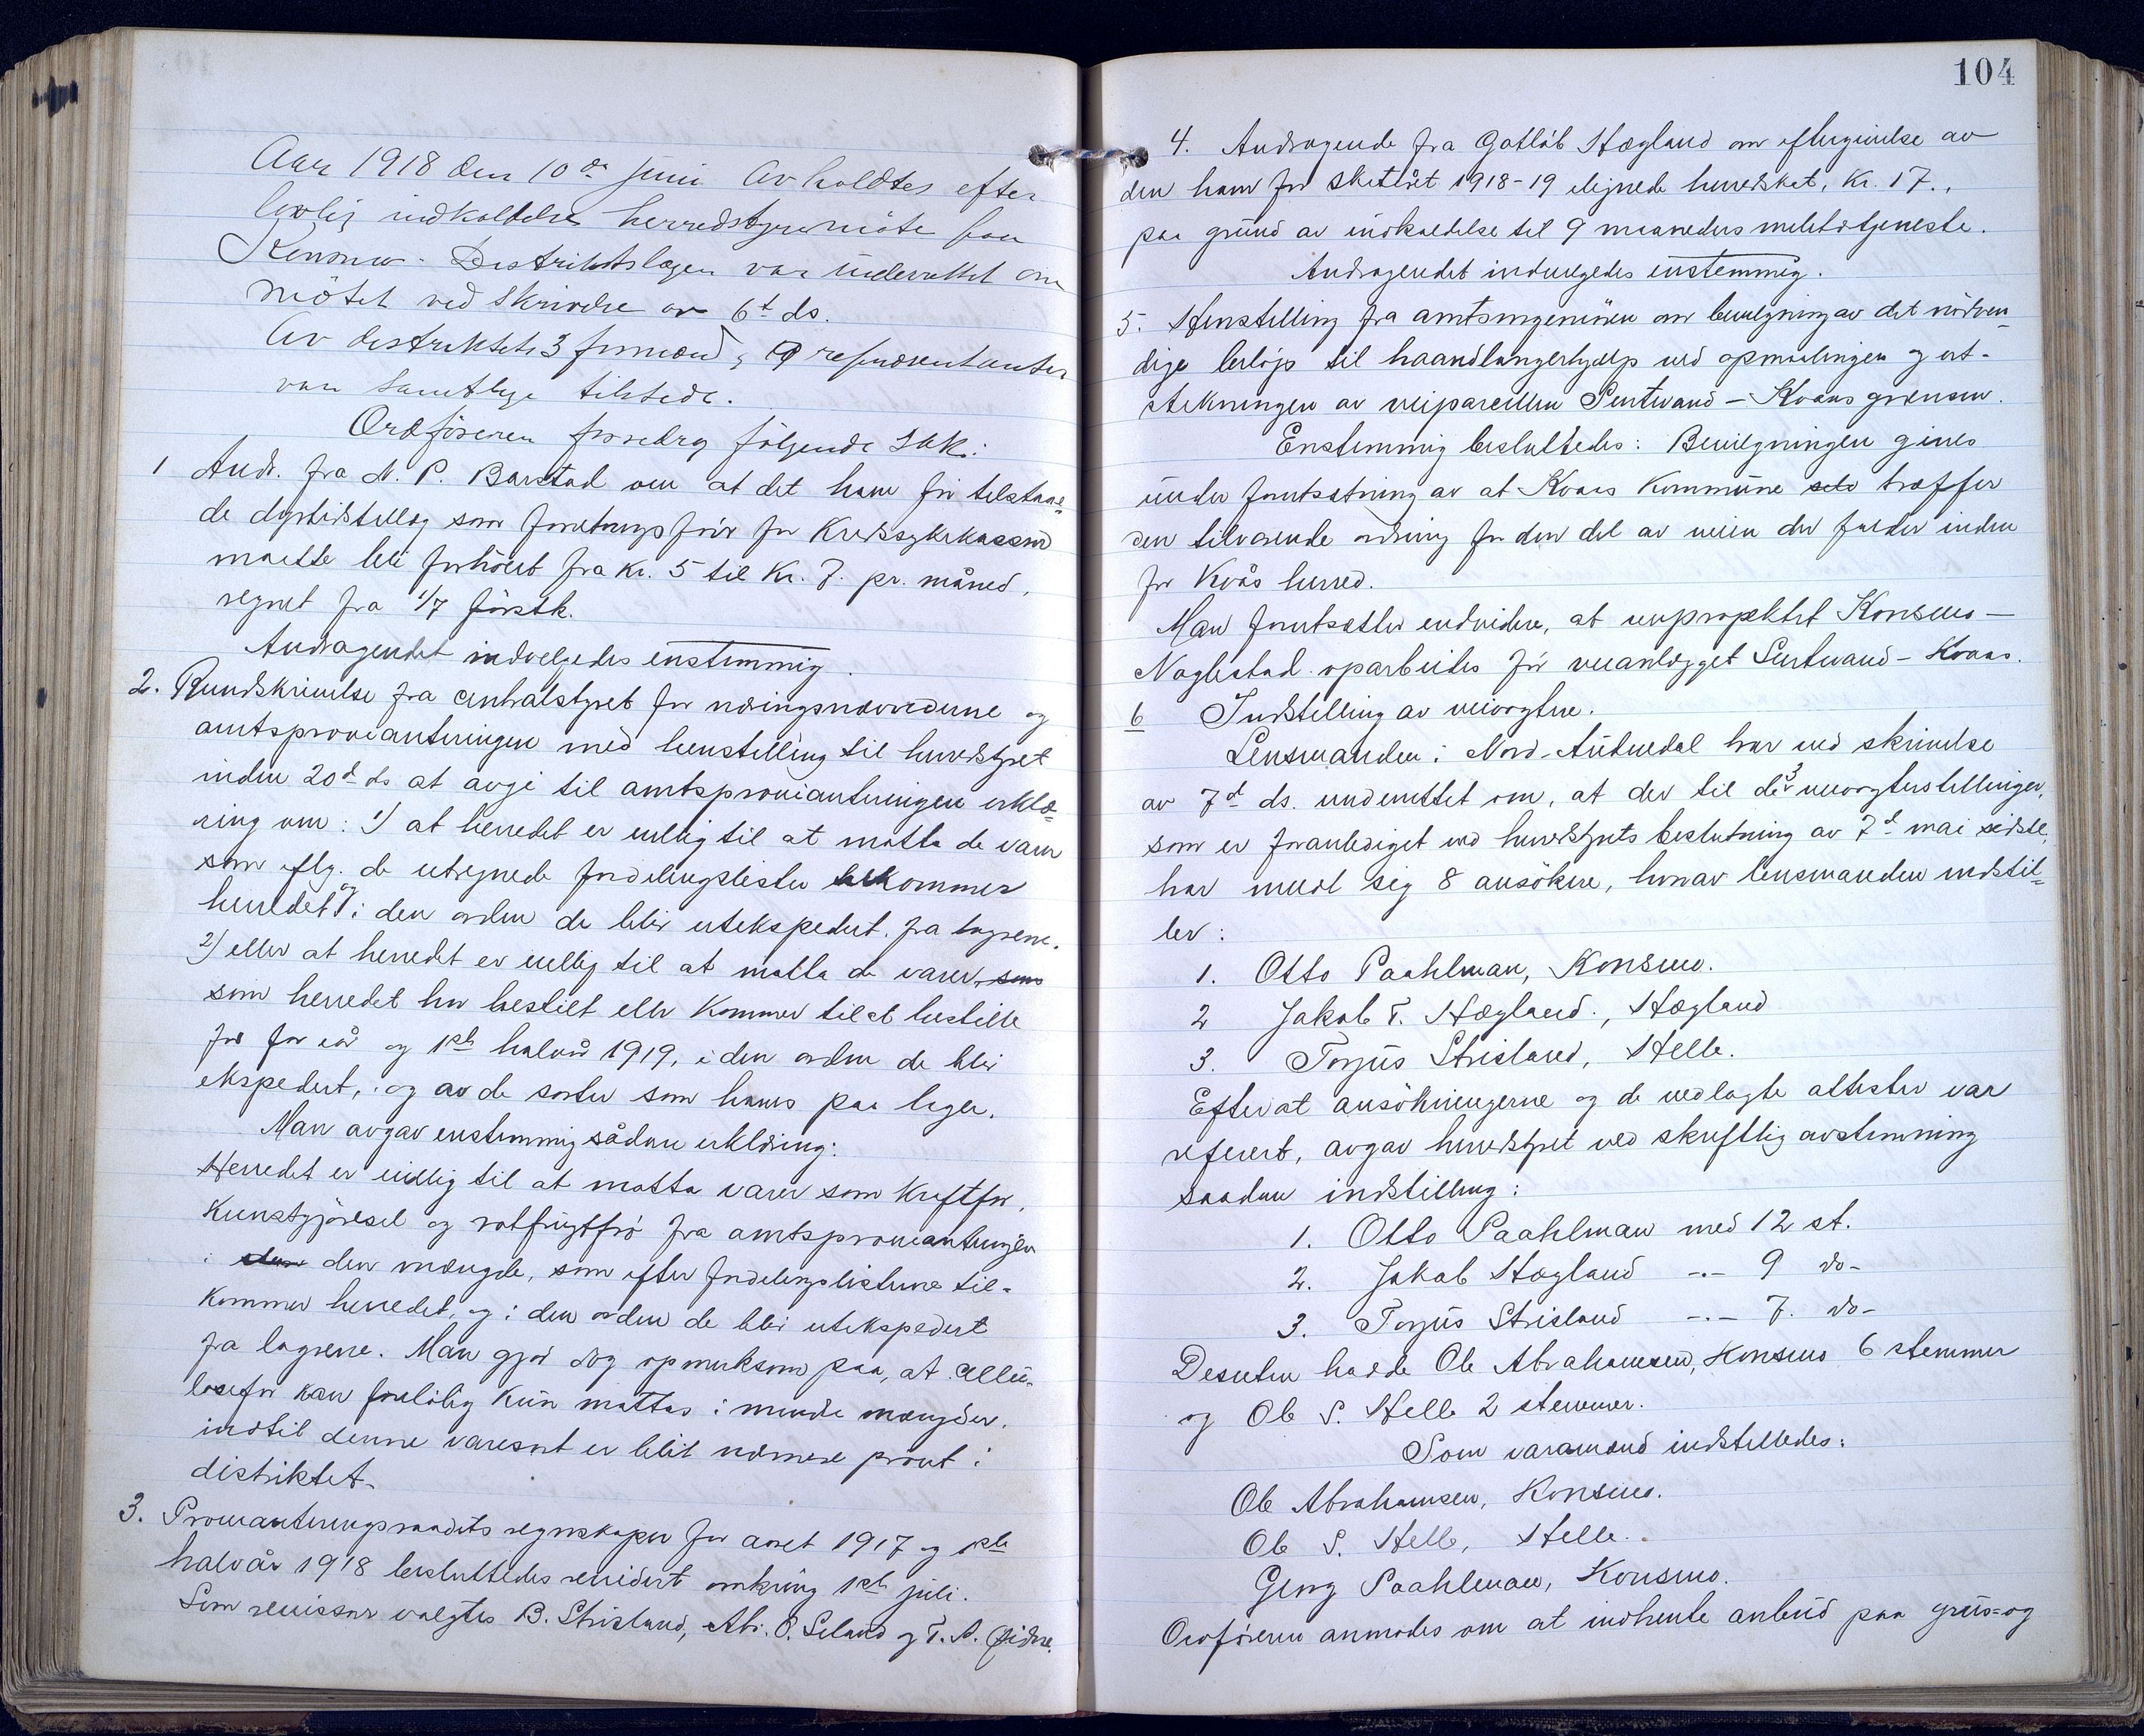 Aar 1918 den 10de juni avholdtes efter
lovlig indkaldelse herredstyremöte paa
Konsmo. Distriktslægen var underrettet om
mötet ved skrivelse av 6t ds.
Av distriktets 3 formænd, 9 repræsentanter
var samtlige tilstede.
Ordföreren foredrog følgende sak:
1 Andr. fra N. P. Barstad om at det ham for tilstaae=
de dyrtidstillæg som forretningsförer for Kredssykekassen
maatte bli forhöiet fra kr. 5 til kr. 7. pr. måned,
regnet fra 1/7 förstk.
Andragendet indvelgedes enstemmig.
2. Rundskrivelse fra centralstyret for næringsnævndene og
amtsprovianteringen med henstilling til herredstyret
inden 20d ds at avgi til amtsprovianteringen erklæ=
ring om: 1) at herredet er villig til at motta de varer
som eflg. de utregnede fordelingslister tilkommer
herredet og i den orden de blir utekspedert fra lagrene.
2) eller at herredet er villig til at motta de varer, som
som herredet har bestilt eller kommer til at bestille
for iår og 1ste halvår 1919, i den orden de blir
ekspedert, og av de sorter som haves paa lager.
Man avgav enstemmig sådan erklæring:
Herredet er villig til at motta varer som kraftfor,
kunstgjödsel og rotfrugtfrö fra amtsprovianteringen
i den den mængde, som efter fordelingslisterne til-
kommer herredet, og i den orden de blir utekspedert
fra lagrene. Man gjör dog opmerksom paa, at cellu-
losefor kan forelöbig kun mottas i mindre mængder,
indtil denne varesort er blit nærmere prövet i
distriktet.
3. Provianteringsraadets regnskaper for aaret 1917 og 1ste
halvår 1918 besluttedes revidert omkring 1ste juli.
Som revisorer valgtes B. Strisland, Abr. O. Seland og T. A. Øidne.
104
4. Andragende fra Gotlöb Hægland om eftergivelse av
den ham for skatteåret 1918-19 ilignede herredskat, kr. 17.,
paa grund av indkaldelse til 9 maaneders militærtjeneste.
Andragendet indvelgedes enstemmig.
5. Henstilling fra amtsingeniören om bevilgning av det nödven-
dige belöp til haandlangerhjælp ved opmaalingen og ut-
stikningen av veiparcellen Sentvand - Kvaas grænsen.
Enstemmig besluttedes: Bevilgningen gives
under forutsætning av at Kvaas kommune selv træffer
den tilsvarende ordning for den del av veien der falder inden
for Kvås herred.
Man forutsætter endvidere, at veiprosjektet Konsmo -
Naglestad oparbeides för veianlægget Sentvand - Kvaas.
6 Indstilling av veivogtere.
Lensmanden i Nord-Audnedal har ved skrivelse
av 7d ds. underrettet om, at der til de 3 veivogterstillinger,
som er foranlediget ved herredstyrets beslutning av 7d mai sidstl.,
har meldt sig 8 ansökere, hvorav lensmanden indstil=
ler:
1. Otto Paahlman, Konsmo.
2 Jakob T. Hægland., Hægland
3. Torjus Strisland, Helle.
Efterat ansökningerne og de vedlagte attester var
referert, avgav herredstyret ved skriftlig avstemning
saadan indstilling:
1. Otto Paahlman med 12 st.
2. Jakob Hægland -.- 9 do-
3. Torjus Strisland -.- 7. do-
Desuten hadde Ole Abrahamsen, Konsmo 6 stemmer
og Ole S. Helle 2 stemmer.
Som varamænd indstilledes:
Ole Abrahamsen, Konsmo.
Ole S. Helle, Helle.
Georg Paahlman, Konsmo.
Ordföreren anmodes om at indhente anbud paa grus= og